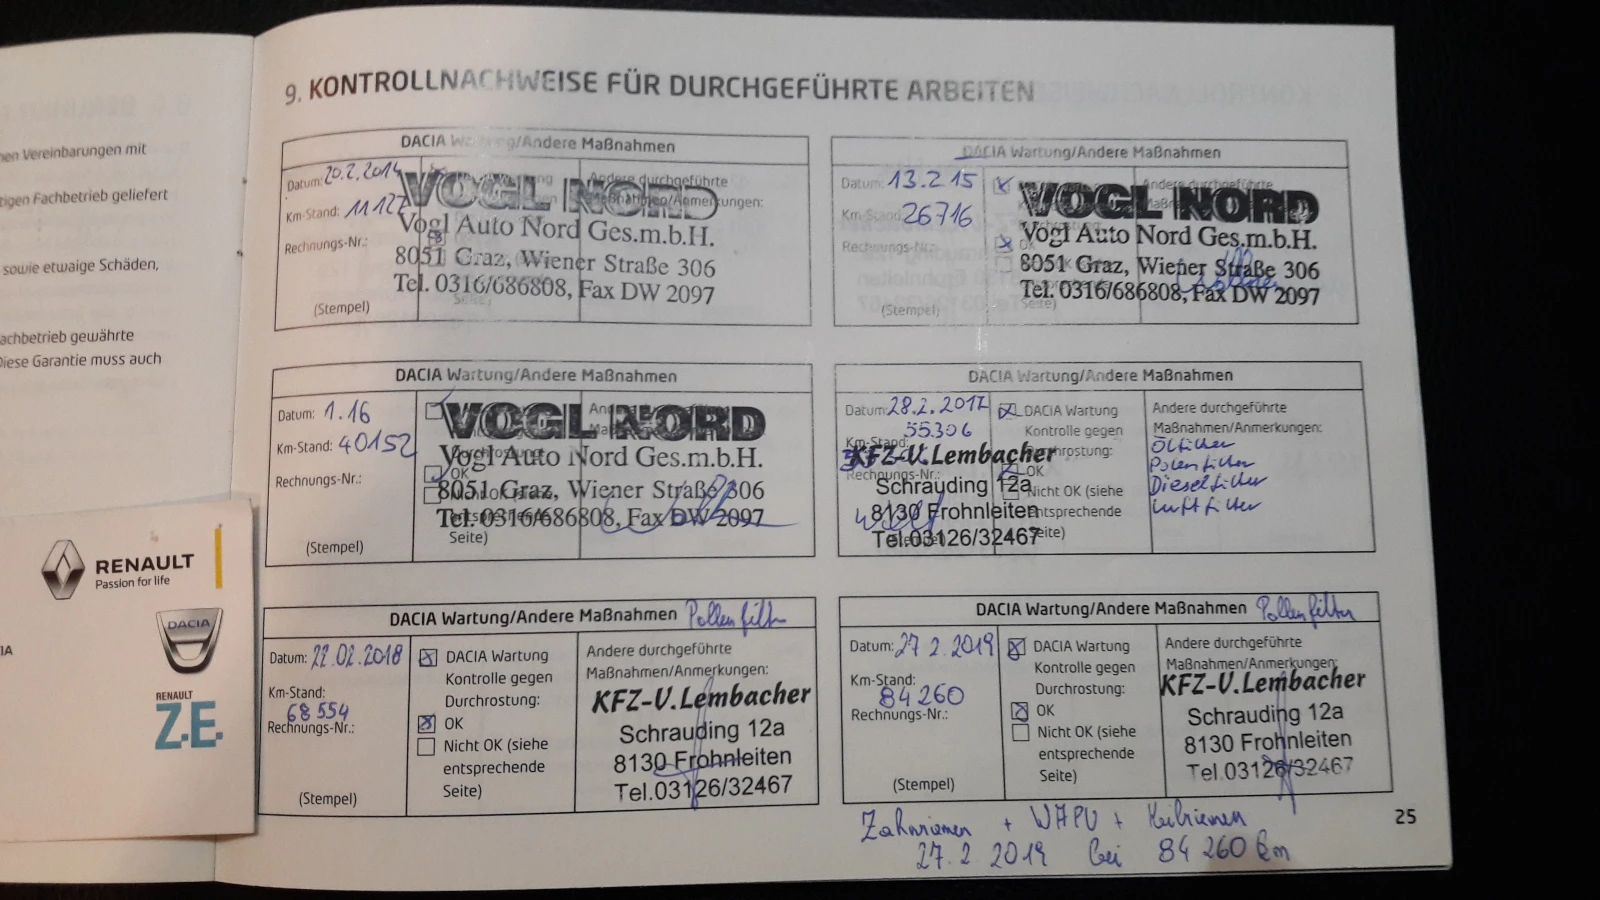 nen Vereinbarungen mit
tigen Fachbetrieb geliefert
sowie etwaige Schäden,
achbetrieb gewährte
Diese Garantie muss auch
IA
RENAULT
Passion for life
DACIA
RENAULT
Z.E.
9. KONTROLLNACHWEISE FÜR DURCHGEFÜHRTE ARBEITEN
DACIA Wartung/Andere Maßnahmen
Datum: 20.2.2014
Km-Stand: 11127
Rechnungs-Nr.:
(Stempel)
Andere durchgeführte
Maßnahmen/Anmerkungen:
VOGL NORD
Vogl Auto Nord Ges.m.b.H.
8051 Graz, Wiener Straße 306
Tel. 0316/686808, Fax DW 2097
Seite)
DACIA Wartung/Andere Maßnahmen
Datum: 13.2.15
Km-Stand: 26716
Rechnungs-Nr.:
(Stempel)
OK
Seite)
Andere durchgeführte
VOGL NORD
Vogl Auto Nord Ges.m.b.H.
8051 Graz, Wiener Straße 306
Tel. 0316/686808, Fax DW 2097
DACIA Wartung/Andere Maßnahmen
Datum: 1.16
Km-Stand: 40152
Rechnungs-Nr.:
(Stempel)
Durchrostung:
OK
Nicht OK (siehe
Seite)
VOGL NORD
Vogl Auto Nord Ges.m.b.H.
8051 Graz, Wiener Straße 306
Tel. 0316/686808, Fax DW 2097
DACIA Wartung/Andere Maßnahmen
Datum: 28.2.2017
55.306
Km-Stand:
Rechnungs-Nr.:
DACIA Wartung
Kontrolle gegen
Durchrostung:
OK
Nicht OK (siehe
entsprechende
Seite)
KFZ-U.Lembacher
Schrauding 12a
8130 Frohnleiten
Tel.03126/32467
Andere durchgeführte
Maßnahmen/Anmerkungen:
Ölfilter
Polenfilter
Dieselfilter
Luftfilter
DACIA Wartung/Andere Maßnahmen Pollenfilter
Datum: 22.02.2018
Km-Stand:
68 554
Rechnungs-Nr.:
(Stempel)
DACIA Wartung
Kontrolle gegen
Durchrostung:
OK
Nicht OK (siehe
entsprechende
Seite)
Andere durchgeführte
Maßnahmen/Anmerkungen:
KFZ-U.Lembacher
Schrauding 12a
8130 Frohnleiten
Tel.03126/32467
DACIA Wartung/Andere Maßnahmen Pollenfilter
Datum: 27.2.2019
Km-Stand:
84 260
Rechnungs-Nr.:
(Stempel)
DACIA Wartung
Kontrolle gegen
Durchrostung:
OK
Nicht OK (siehe
entsprechende
Seite)
Andere durchgeführte
Maßnahmen/Anmerkungen:
KFZ-U.Lembacher
Schrauding 12a
8130 Frohnleiten
Tel.03126/32467
Zahnriemen + WAPU + Keilriemen
27.2.2019 bei 84 260 km
25